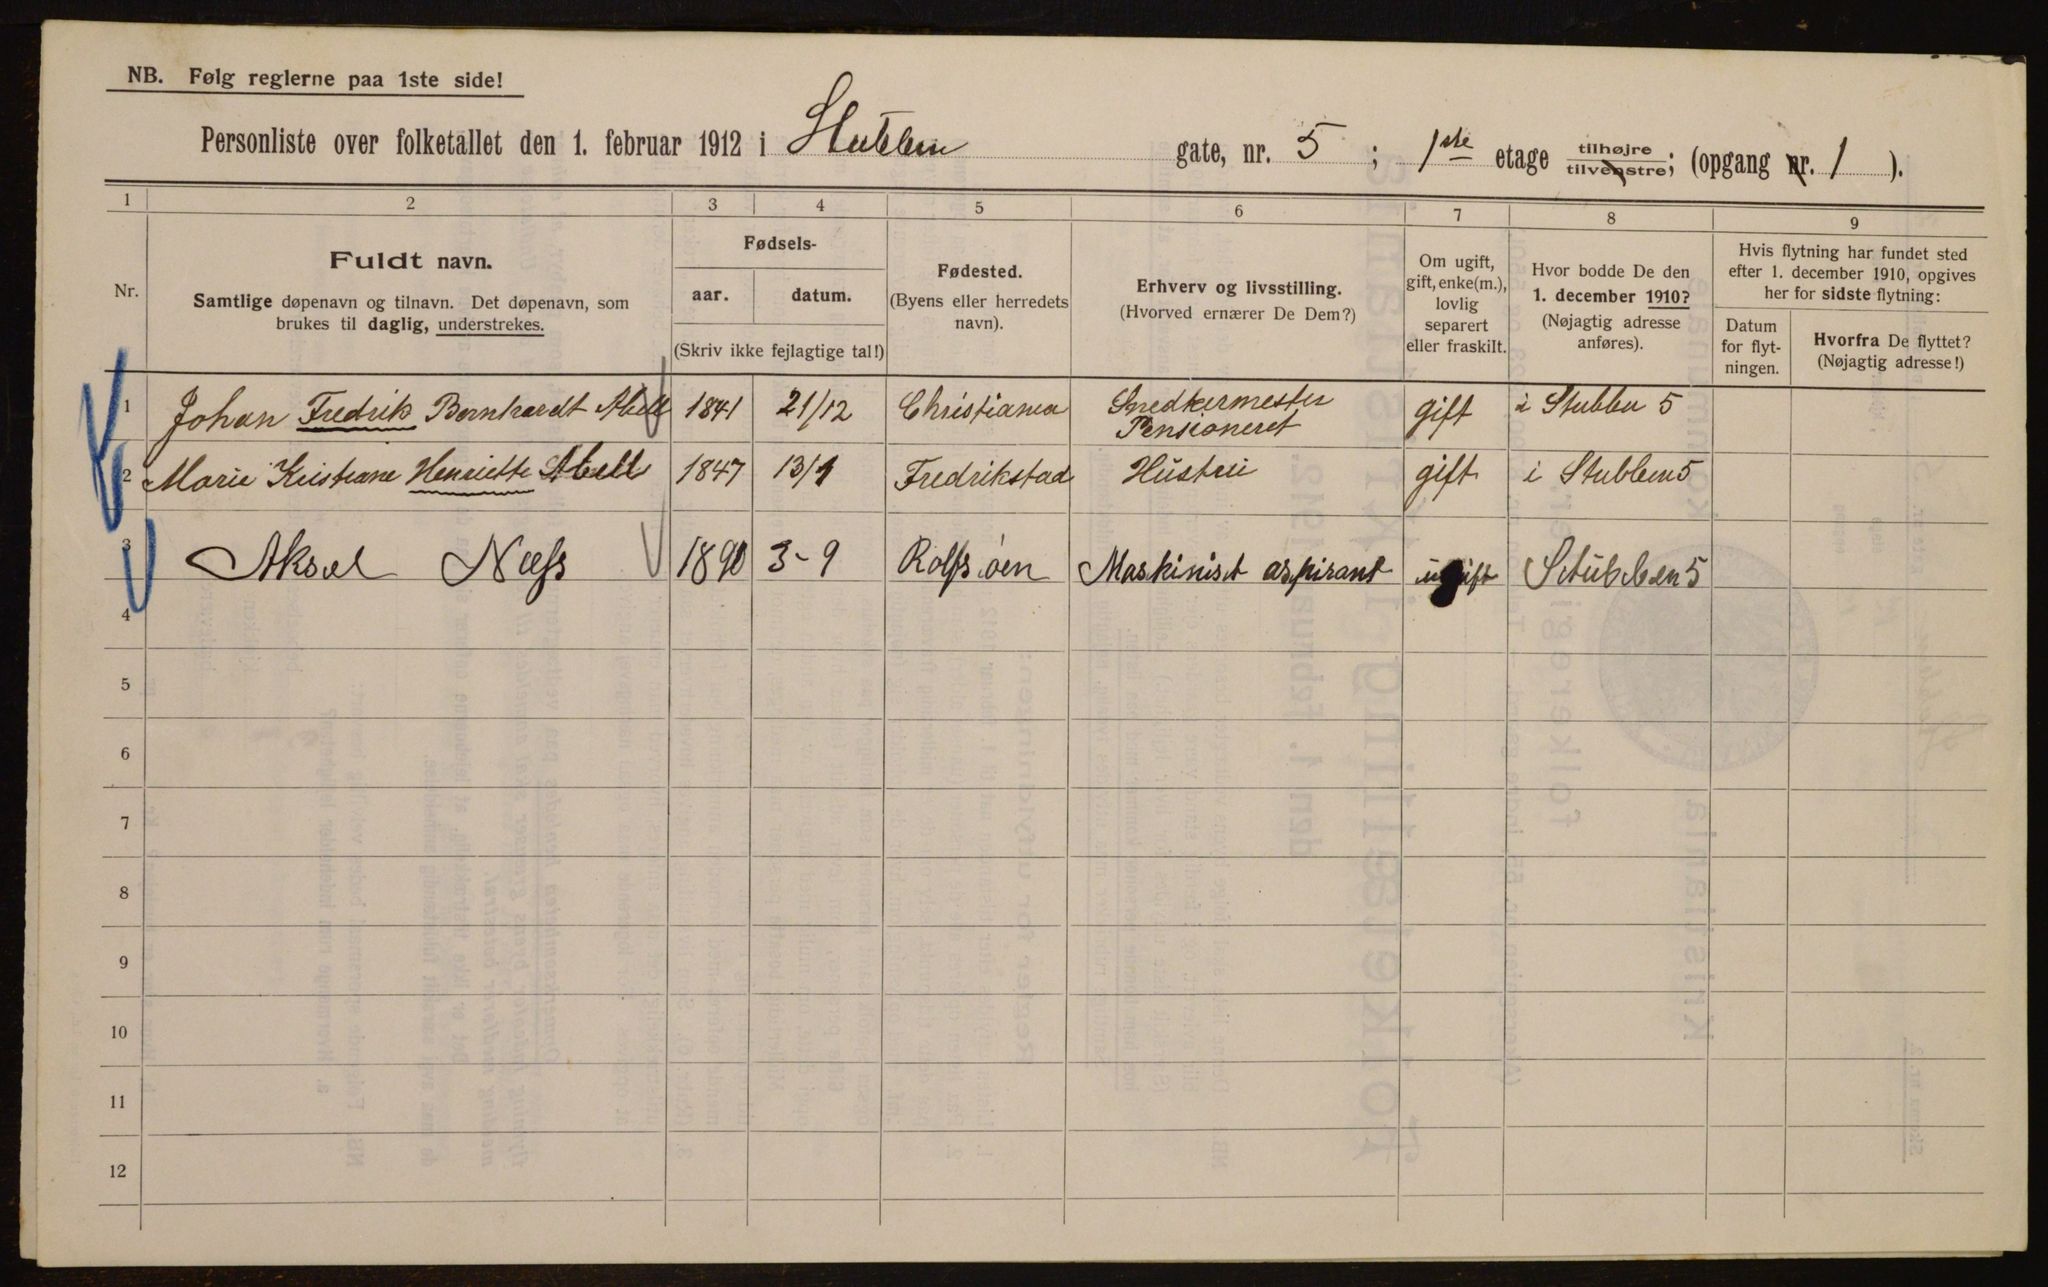 NB. Følg reglerne paa 1ste side!
Personliste over folketallet den 1. februar 1912 i Stubben gate, nr. 5 ; 1ste etage tilhøjre / tilvenstre; (opgang nr. 1 ).
1 2 3 4 5 6 7 8 9
Nr.
Fuldt navn.
Samtlige døpenavn og tilnavn. Det døpenavn, som
brukes til daglig, understrekes.
Fødsels-
aar. datum.
(Skriv ikke fejlagtige tal!)
Fødested.
(Byens eller herredets
navn).
Erhverv og livsstilling.
(Hvorved ernærer De Dem?)
Om ugift,
gift, enke(m.),
lovlig
separert
eller fraskilt.
Hvor bodde De den
1. december 1910?
(Nøjagtig adresse
anføres).
Hvis flytning har fundet sted
efter 1. december 1910, opgives
her for sidste flytning:
Datum
for flyt-
ningen.
Hvorfra De flyttet?
(Nøjagtig adresse!)
1 Johan Fredrik Bernhardt Abell 1841 21/12 Christiania Snedkermester
Pensioneret gift i Stubben 5
2 Marie Kristiane Henriette Abell 1847 13/1 Fredrikstad Hustru gift i Stubben 5
3 Aksel Næss 1890 3-9 Rolfsøen Maskinist aspirant ugift Stubben 5
4
5
6
7
8
9
10
11
12